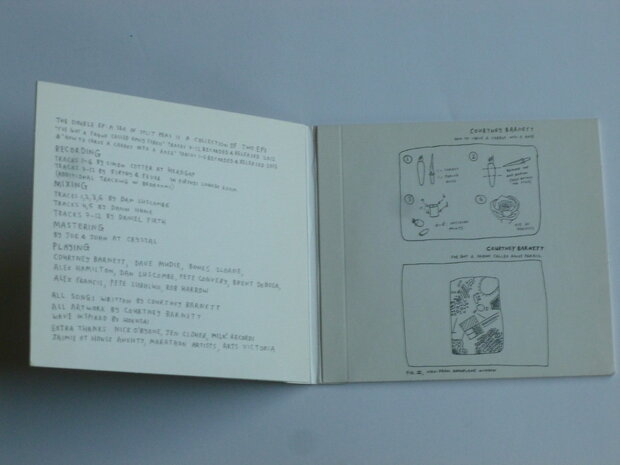 THE DOUBLE EP: A SEA OF SPLIT PEAS IS A COLLECTION OF TWO EPS
"I'VE GOT A FRIEND CALLED EMILY FERRIS" TRACKS 7-12 RECORDED & RELEASED 2012
& "HOW TO CARVE A CARROT INTO A ROSE" TRACKS 1-6 RECORDED & RELEASED 2013
RECORDING
TRACKS 1-6 BY SIMON COTTER AT HEADGAP
TRACKS 7-12 BY FIRTHY &
(ADDITIONAL TRACKING IN BEDROOMS)
MIXING
TRACKS 1,2,3,6 BY DAN LUSCOMBE
TRACKS 4,5 BY
TRACKS 7-12 BY DANIEL FIRTH
MASTERING
BY JOE & JOHN AT CRYSTAL
PLAYING
COURTNEY BARNETT, DAVE MUDIE, BONES SLOANE,
ALEX HAMILTON, DAN LUSCOMBE, PETE CONVERY, BRENT DEBOSA,
ALEX FRANCIS, PETE LUBULWA, ROB HARROW
ALL SONGS WRITTEN BY COURTNEY BARNETT
ALL ARTWORK BY COURTNEY BARNETT
WAVE INSPIRED BY HOKUSAI
EXTRA THANKS NICK O'BYRNE, JEN CLOHER, MILK! RECORDS
JAIMIE AT HOUSE ANXIETY, MARATHON ARTISTS, ARTS VICTORIA
COURTNEY BARNETT
HOW TO CARVE A CARROT INTO A ROSE
1
2
3
4
COURTNEY BARNETT
I'VE GOT A FRIEND CALLED EMILY FERRIS
FIG. II, VIEW FROM AEROPLANE WINDOW